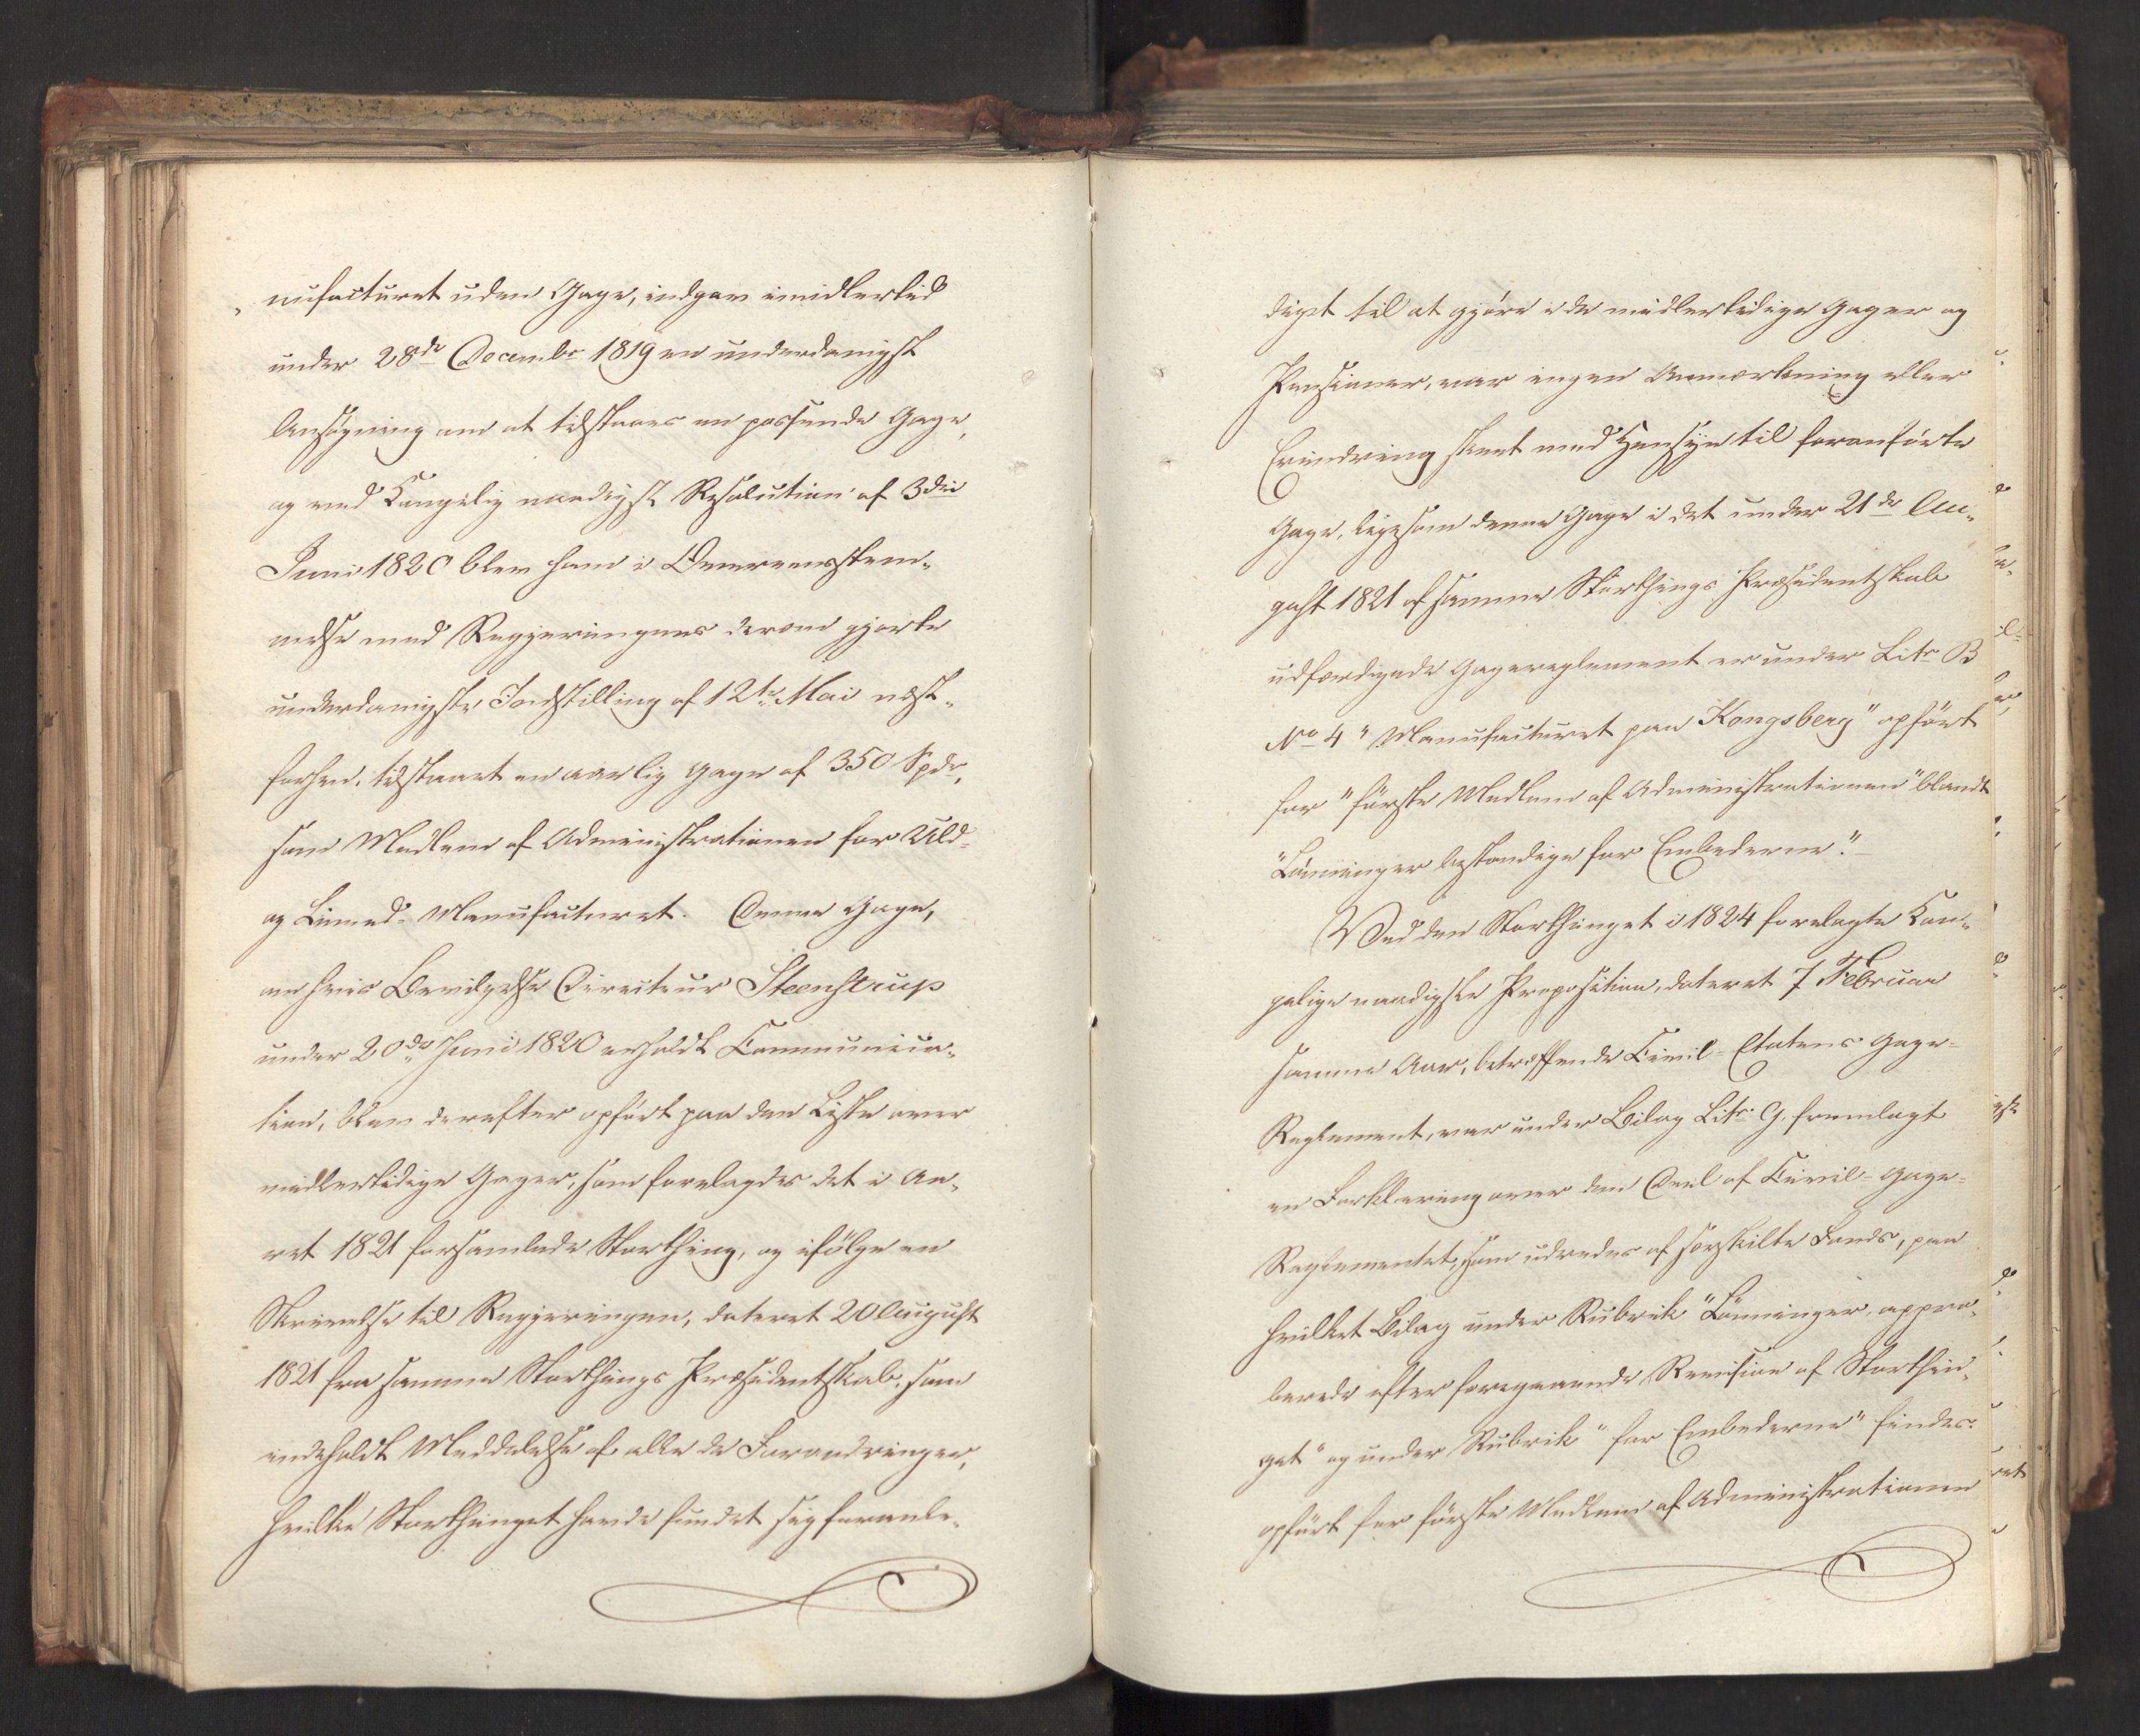 „nufacturet uden Gage, indgav imidlertid
under 28de Decembr 1819 en underdanigst
Ansøgning om at tilstaaes en passende Gage,
og ved Kongelig naadigst Resolution af 3die
Juni 1820 blev ham i Overeensstem„
melse med Regjeringens derom gjorte
underdanigste Indstilling af 12te Mai næst„
forhen, tilstaaet en aarlig Gage af 350 Spdr,
som Medlem af Administrationen for Uld-
og Linned-Manufacturet. Denne Gage,
om hvis Bevilgelse Directeur Steenstrup
under 20de Juni 1820 erholdt Communica„
tion, blev derefter opført paa den Liste over
midlertidige Gager, som forelagdes det i Aa„
ret 1821 forsamlede Storthing, og ifølge en
Skrivelse til Regjeringen, dateret 20 August
1821 fra samme Storthings Præsidentskab, som
indeholdt Meddelelse af alle de Forandringer,
hvilke Storthinget havde fundet sig foranle„
diget til at gjøre i de midlertidige Gager og
Pensioner, var ingen Anmærkning eller
Erindring skeet med Hensyn til foranførte
Gage, ligesom denne Gage i det under 21de Au„
gust 1821 af samme Storthings Præsidentskab
udfærdigede Gagereglement er under Litr B
No 4 "Manufacturet paa Kongsberg" opført
for "første Medlem af Administrationen" blandt
"Lønninger bestandige for Embederne."
Ved den Storthinget i 1824 forelagte Kon„
gelige naadigste Proposition, dateret 7 Februar
samme Aar, betræffende Civil-Etatens Gage-
Reglement, var under Bilag Litr: G. fremlagt
en Forklaring over den Deel af Civil-Gage-
Reglementet, som udredes af særskilte Fonds, paa
hvilket Bilag under Rubrik "Lønninger, appro„
berede efter foregaaende Revision af Storthin„
get" og under Rubrik "for Embederne" findes
opført for første Medlem af Administrationen